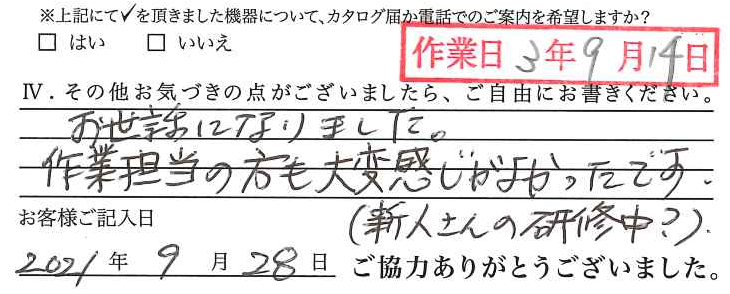 ※上記にて✓を頂きました機器について、カタログ届か電話でのご案内を希望しますか?
□ はい □ いいえ
作業日 3年9月14日
Ⅳ.その他お気づきの点がございましたら、ご自由にお書きください。
お世話になりました。
作業担当の方も大変感じがよかったです.
(新人さんの研修中?).
お客様ご記入日
2021年9月28日 ご協力ありがとうございました。